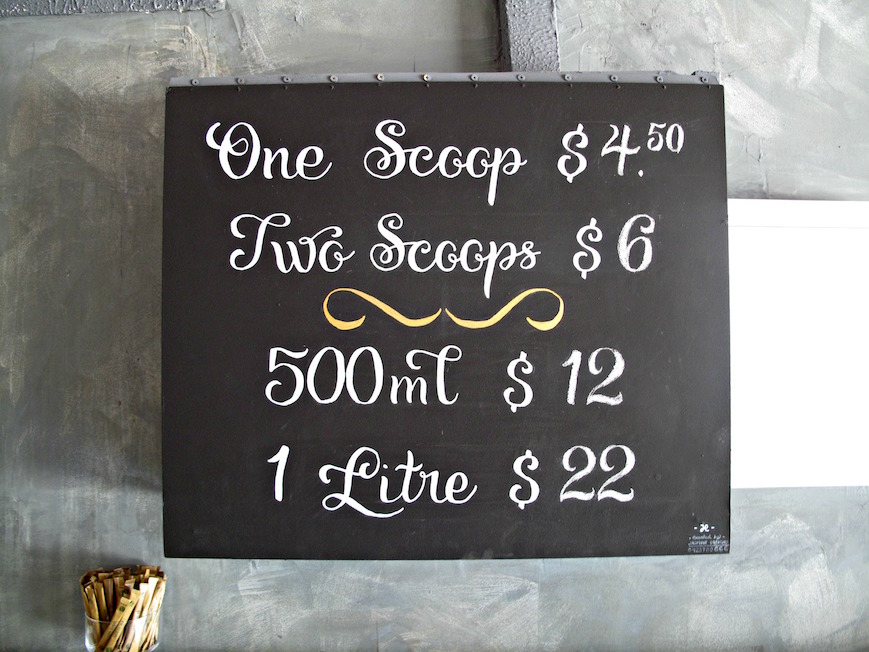 One Scoop $4.50
Two Scoops $6
500ml $12
1 Litre $22